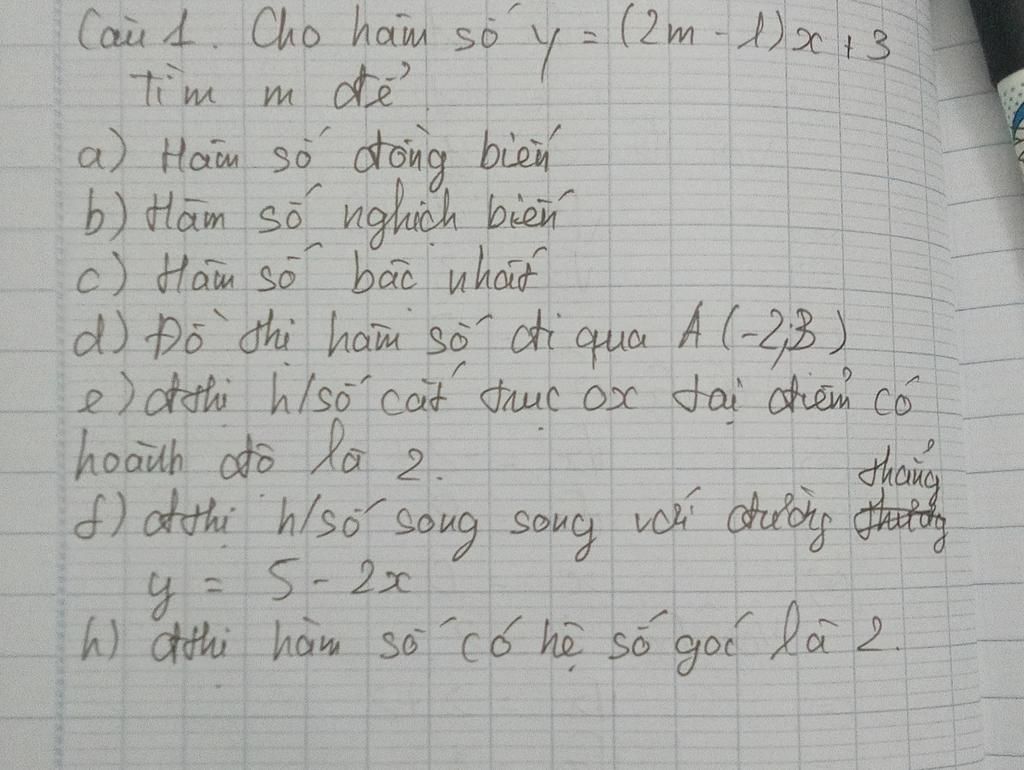 Câu 1. Cho hàm số y = (2m - 1)x + 3
Tìm m để
a) Hàm số đồng biến
b) Hàm số nghịch biến
c) Hàm số bậc nhất
d) Đồ thị hàm số đi qua A (-2;3)
e) đthị h/số cắt trục ox tại điểm có
hoành độ là 2.
f) đthị h/số song song với đường thẳng
y = 5 - 2x
h) đthị hàm số có hệ số góc là 2.